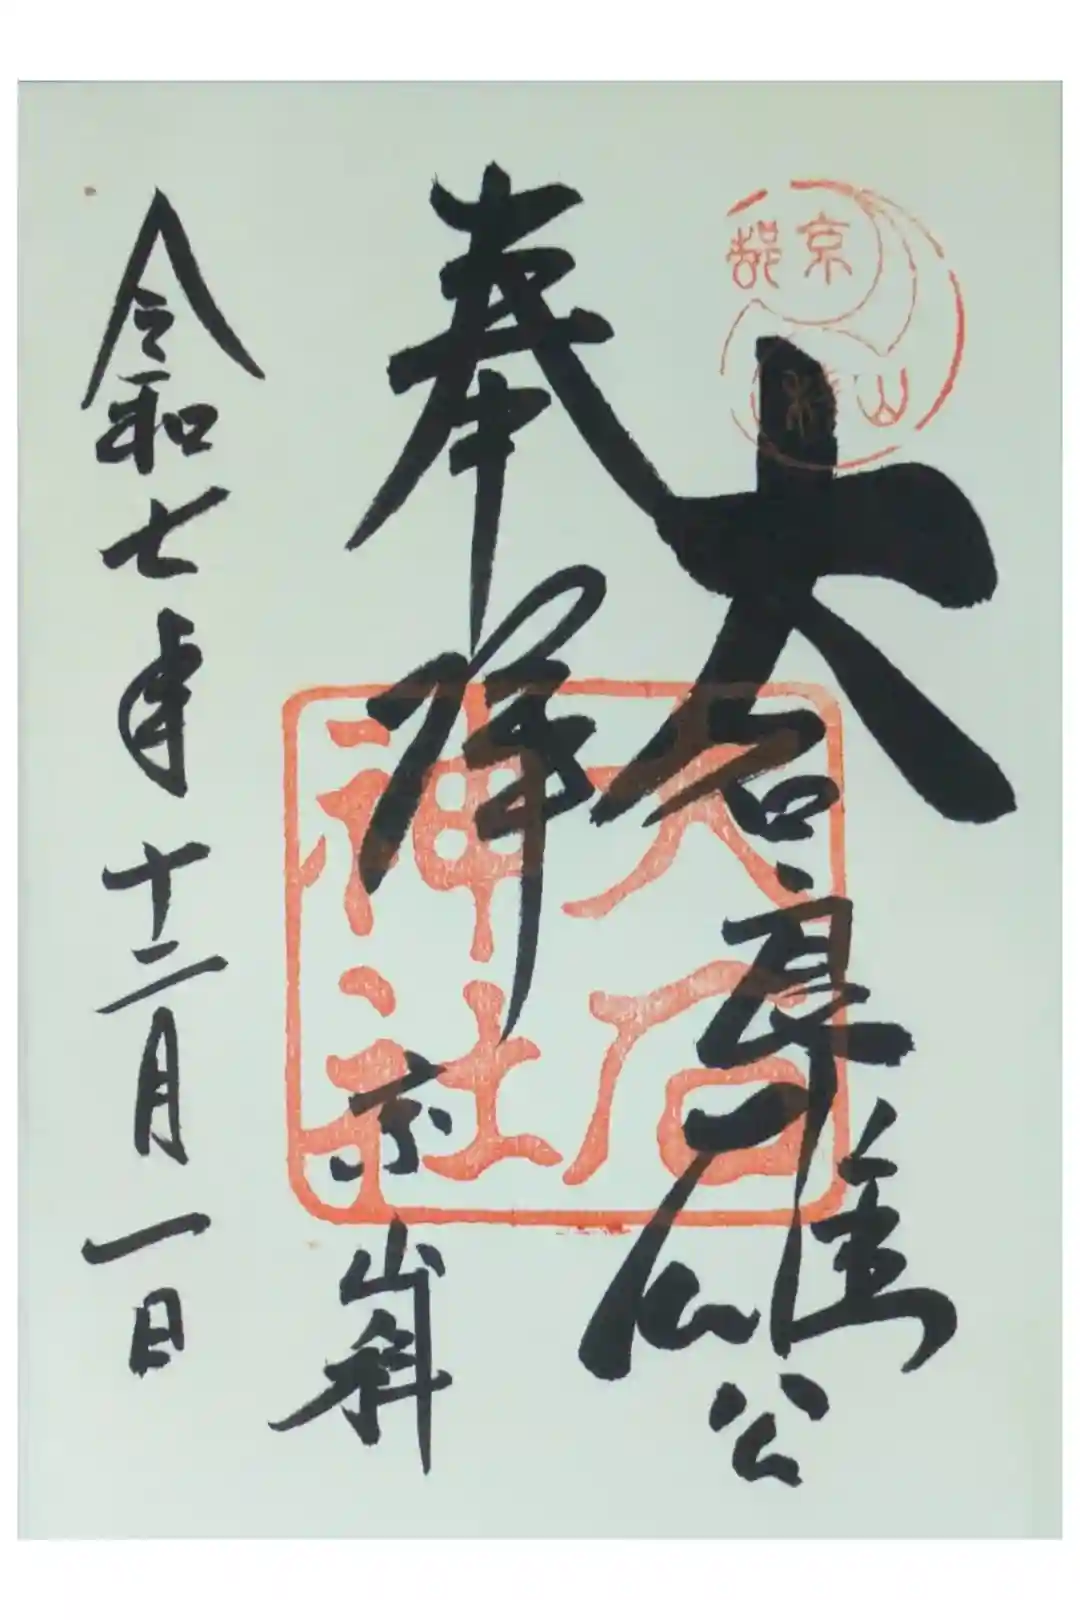 京都
山科
大石良雄公
大石神社
奉拝
京山科
令和七年十二月一日